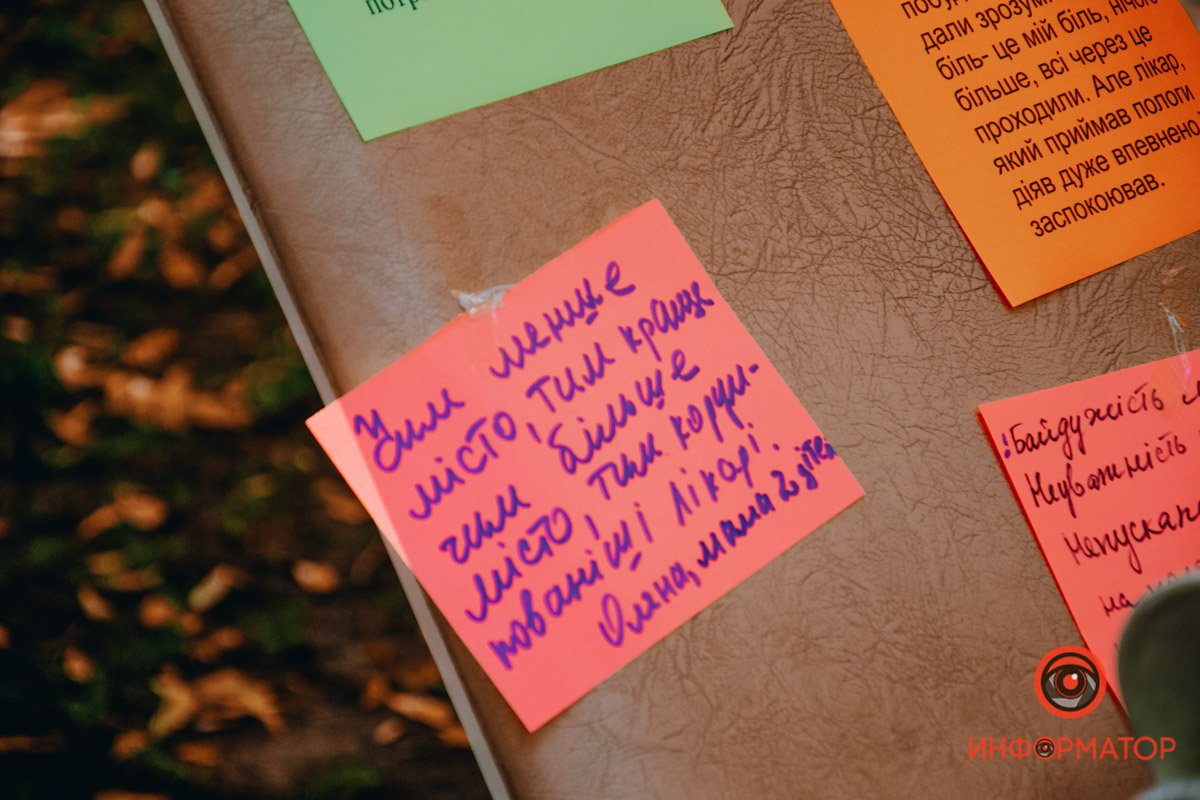 потр
побу
дали зрозумі
біль- це мій біль, нічого
більше, всі через це
проходили. Але лікар,
який приймав пологи
діяв дуже впевнено
заспокоював.
Чим менше
місто, тим краще
чим більше
місто, тим корум-
пованіші лікарі.
Олена, мама 2х дітей
!Байдужість
Неуважність
Непускан
на
ИНФОРМАТОР